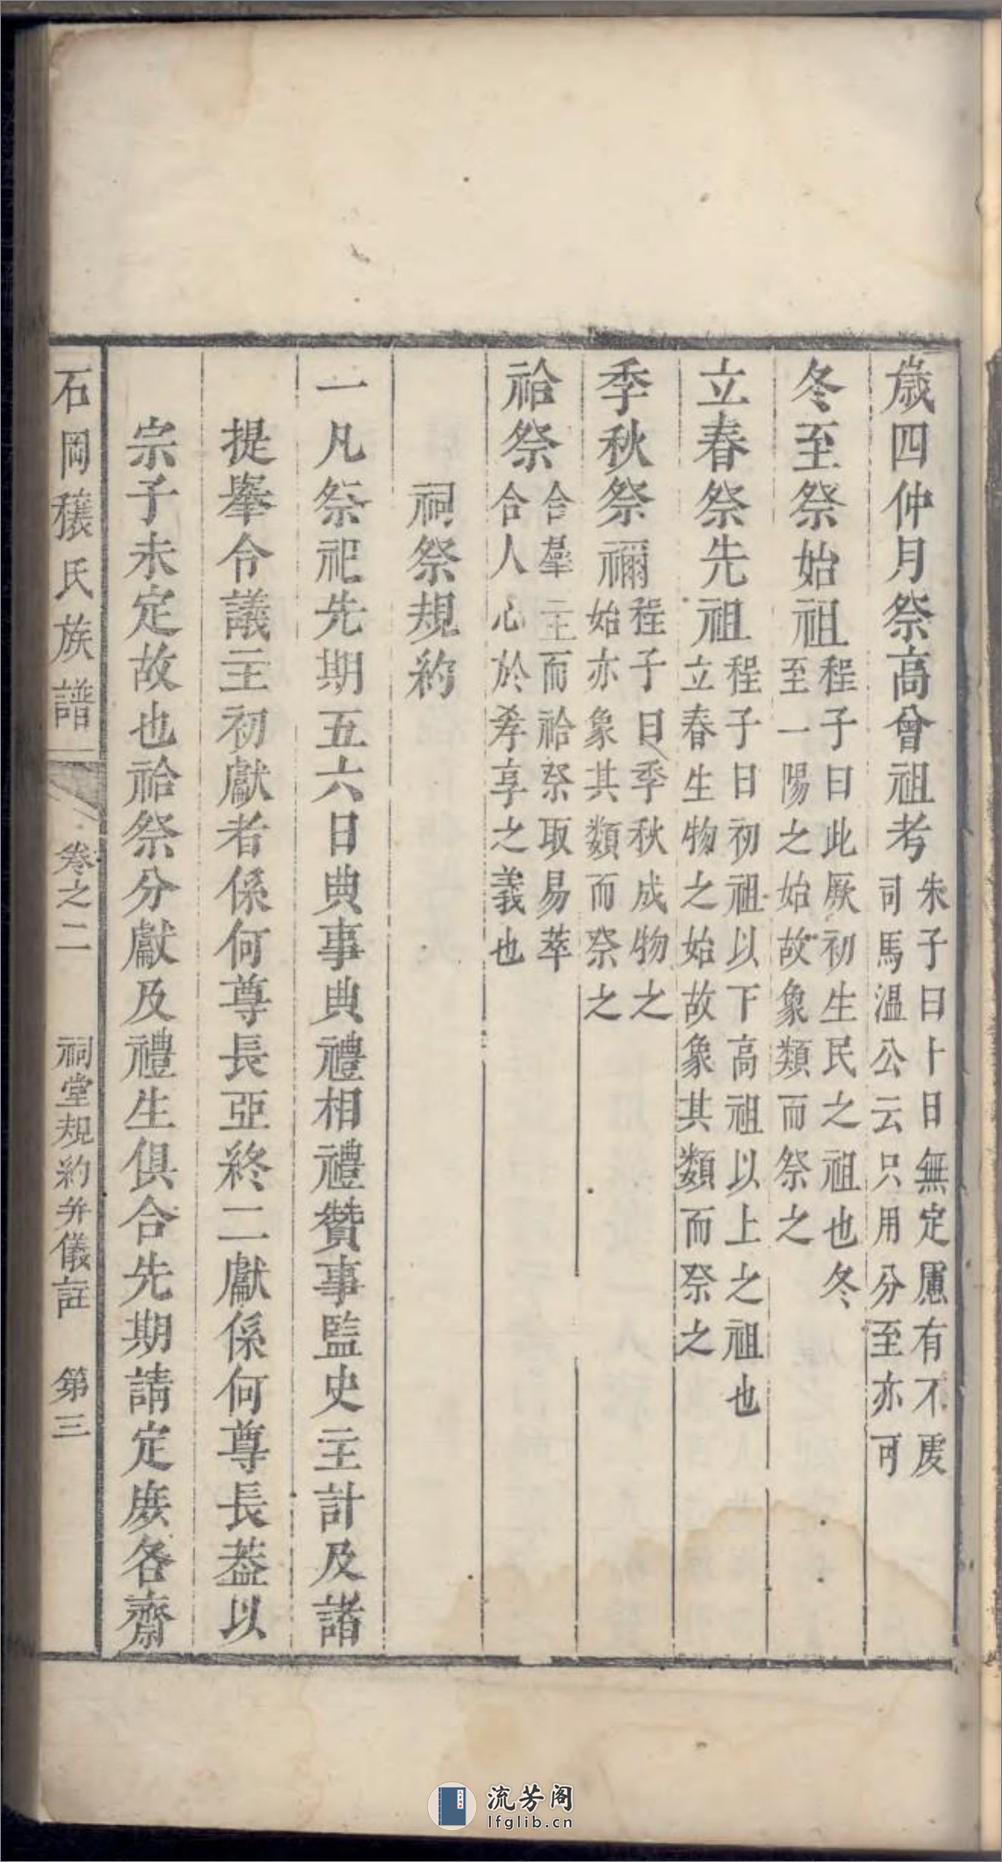 歲四仲月祭高曾祖考朱子曰卜日無定慮有不虔司馬温公云只用分至亦可
冬至祭始祖程子曰此厥初生民之祖也冬至一陽之始故象類而祭之
立春祭先祖程子曰初祖以下高祖以上之祖也立春生物之始故象其類而祭之
季秋祭禰程子曰季秋成物之始亦象其類而祭之
祫祭合羣主而祫祭取易萃合人心於孝享之義也
祠祭規約
一凡祭祀先期五六日典事典禮相禮贊事監史主計及諸
提舉令議主初獻者係何尊長亞終二獻係何尊長葢以
宗子未定故也祫祭分獻及禮生俱合先期請定庻各齋
石岡穰氏族譜 卷之二 祠堂規約并儀註 第三
流芳阁
lfglib.cn